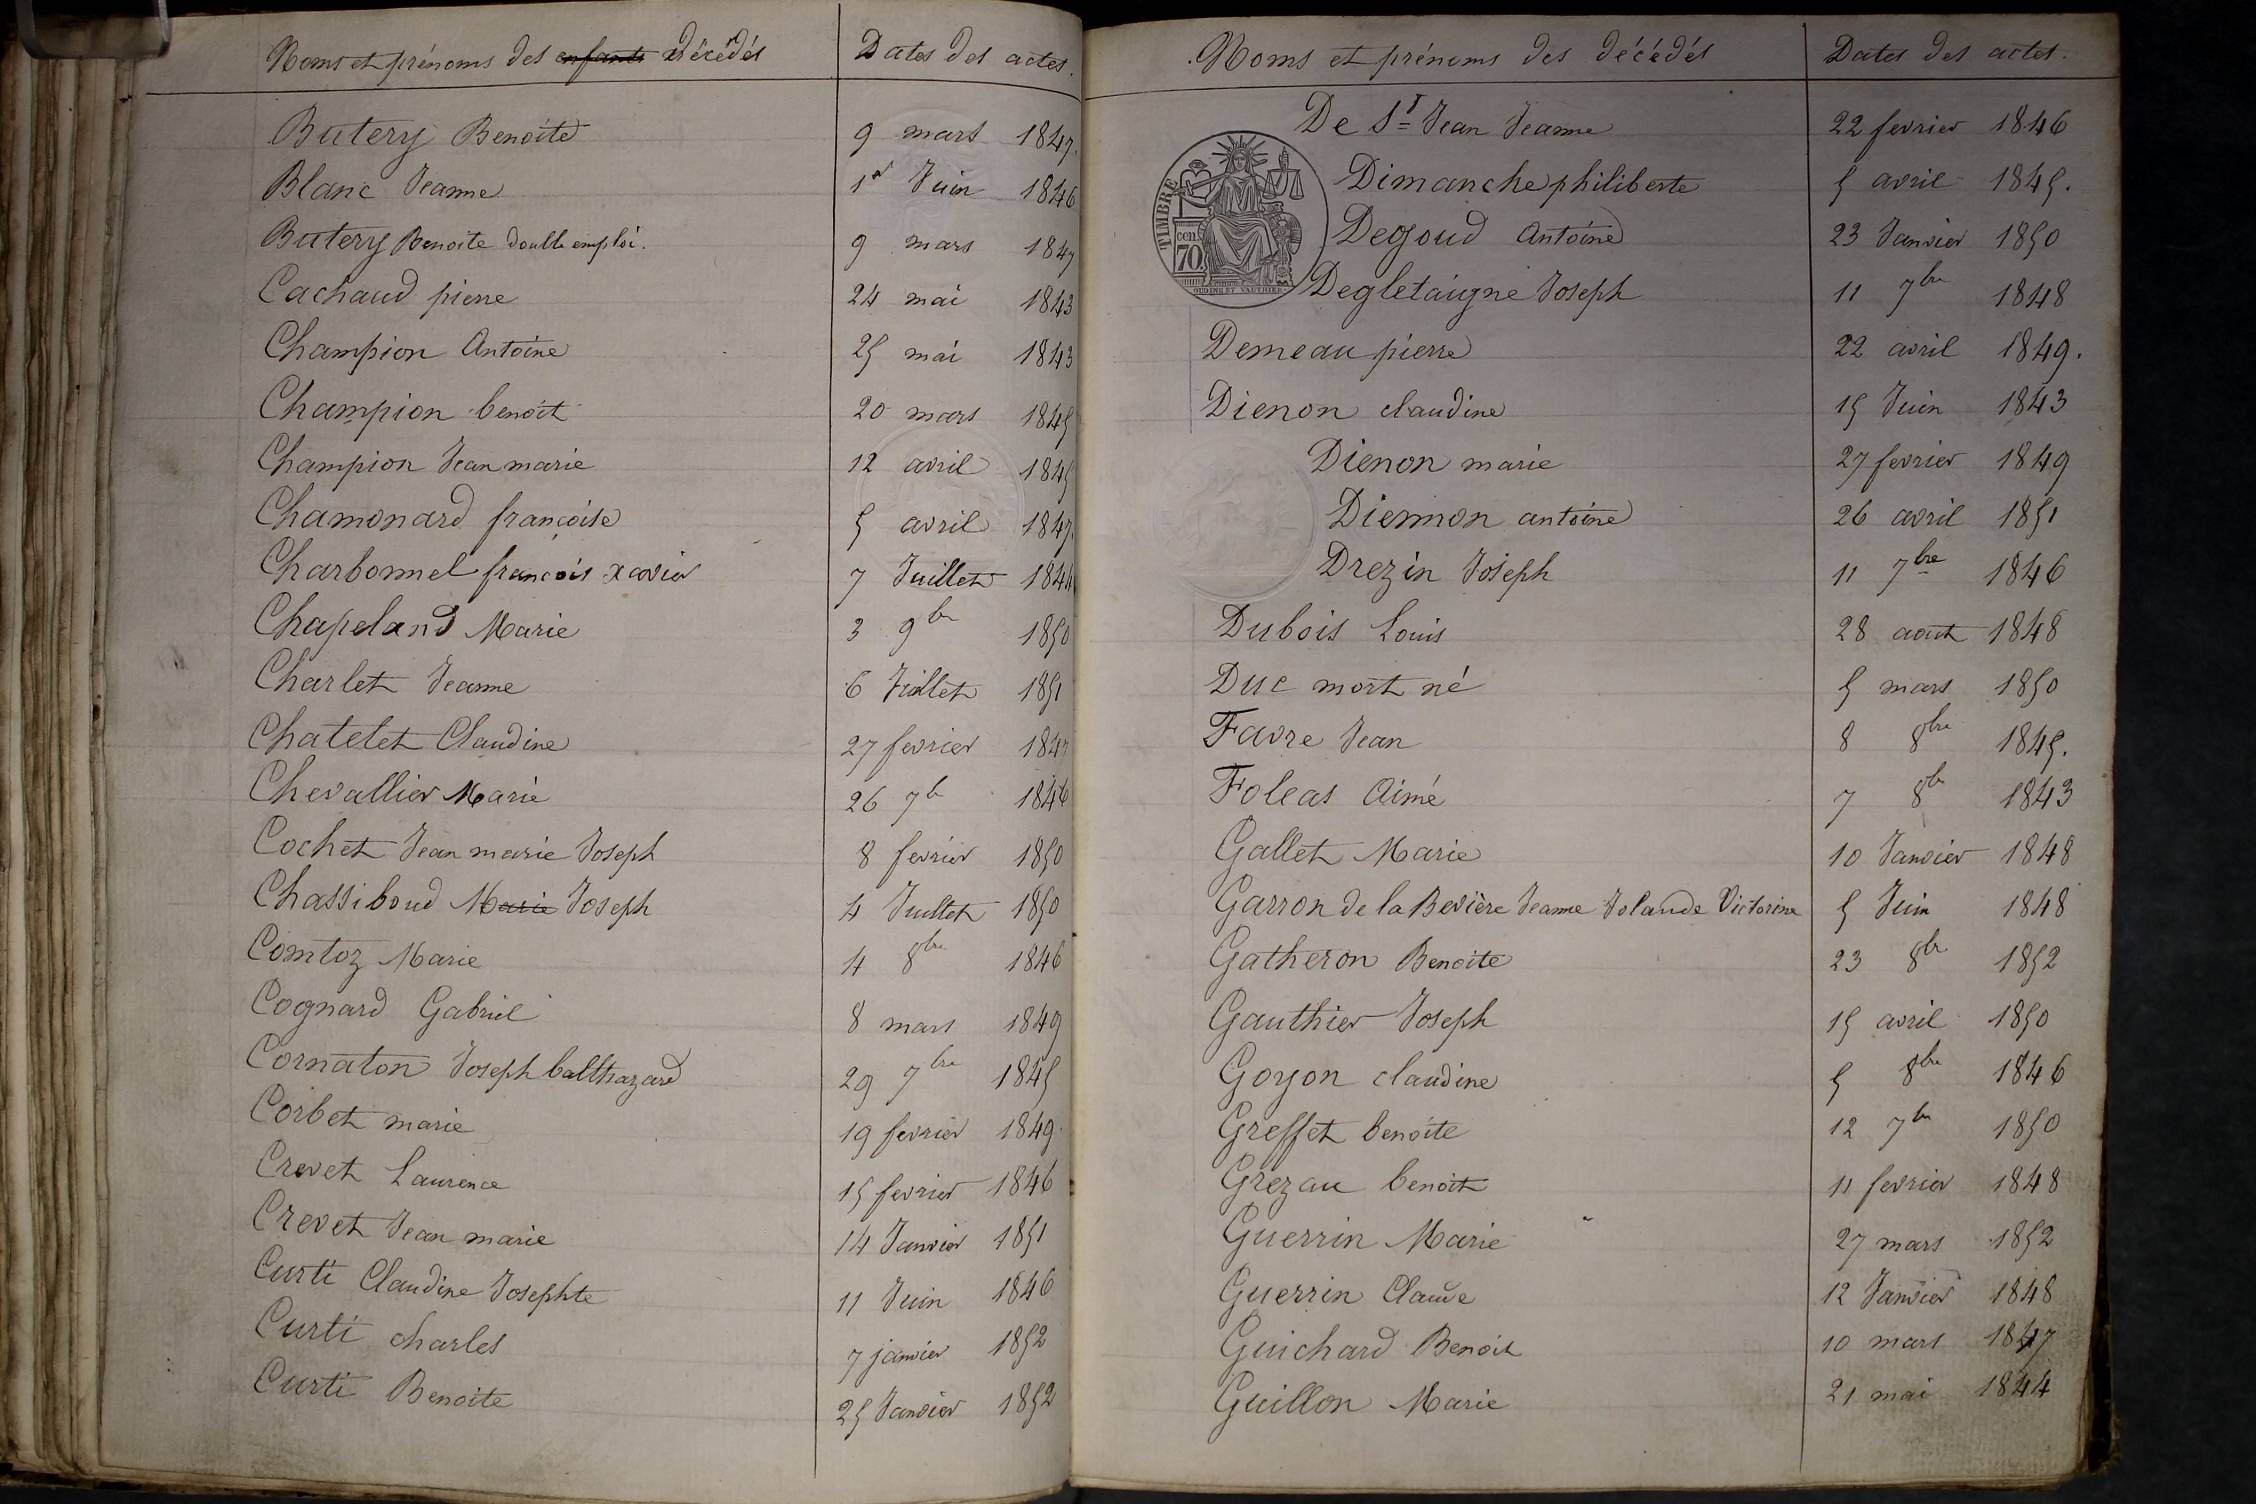 Noms et prénoms des enfants décédés Dates des actes.
Butery Benoite 9 mars 1847.
Blanc Jeanne 1er Juin 1846
Butery Benoite double emploi. 9 mars 1847
Cachaud pierre 24 mai 1843
Champion Antoine 25 mai 1843
Champion benoit 20 mars 1845
Champion Jean marie 12 avril 1845
Chamonard françoise 5 avril 1847.
Charbonnel françois xavier 7 Juillet 1844
Chapeland Marie 3 9bre 1850
Charlet Jeanne 6 Juillet 1851
Chatelet Claudine 27 fevrier 1847
Chevallier Marie 26 7b 1846
Cochet Jean marie Joseph 8 fevrier 1850
Chassiboud Marie Joseph 4 Juillet 1850
Comtoz Marie 4 8bre 1846
Cognard Gabriel 8 mars 1849
Cornaton Joseph balthazard 29 7bre 1845
Corbet marie 19 fevrier 1849.
Crevet Laurence 15 fevrier 1846
Crevet Jean marie 14 Janvier 1851
Curti Claudine Josephte 11 Juin 1846
Curti charles 7 janvier 1852
Curti Benoite 25 Janvier 1852
Noms et prénoms des décédés Dates des actes.
De St Jean Jeanne 22 fevrier 1846
Dimanche philiberte 5 avril 1845.
Degoud Antoine 23 Janvier 1850
Degletaigne Joseph 11 7bre 1848
TIMBRE
70 cen.
OUDINE ET VAUTHIER
Demeau pierre 22 avril 1849.
Dienon claudine 15 Juin 1843
Dienon marie 27 fevrier 1849
Diennon antoine 26 avril 1851
Drezin Joseph 11 7bre 1846
Dubois Louis 28 aout 1848
Duc mort né 5 mars 1850
Favre Jean 8 8bre 1845.
Foleas Aimé 7 8b 1843
Gallet Marie 10 Janvier 1848
Garron de la Bevière Jeanne Jolande Victorine 5 Juin 1848
Gatheron Benoite 23 8br 1852
Gauthier Joseph 15 avril 1850
Goyon claudine 5 8bre 1846
Greffet benoite 12 7bre 1850
Grezau benoit 11 fevrier 1848
Guerrin Marie 27 mars 1852
Guerrin Claude 12 Janvier 1848
Guichard Benoit 10 mars 1847
Guillon Marie 21 mai 1844